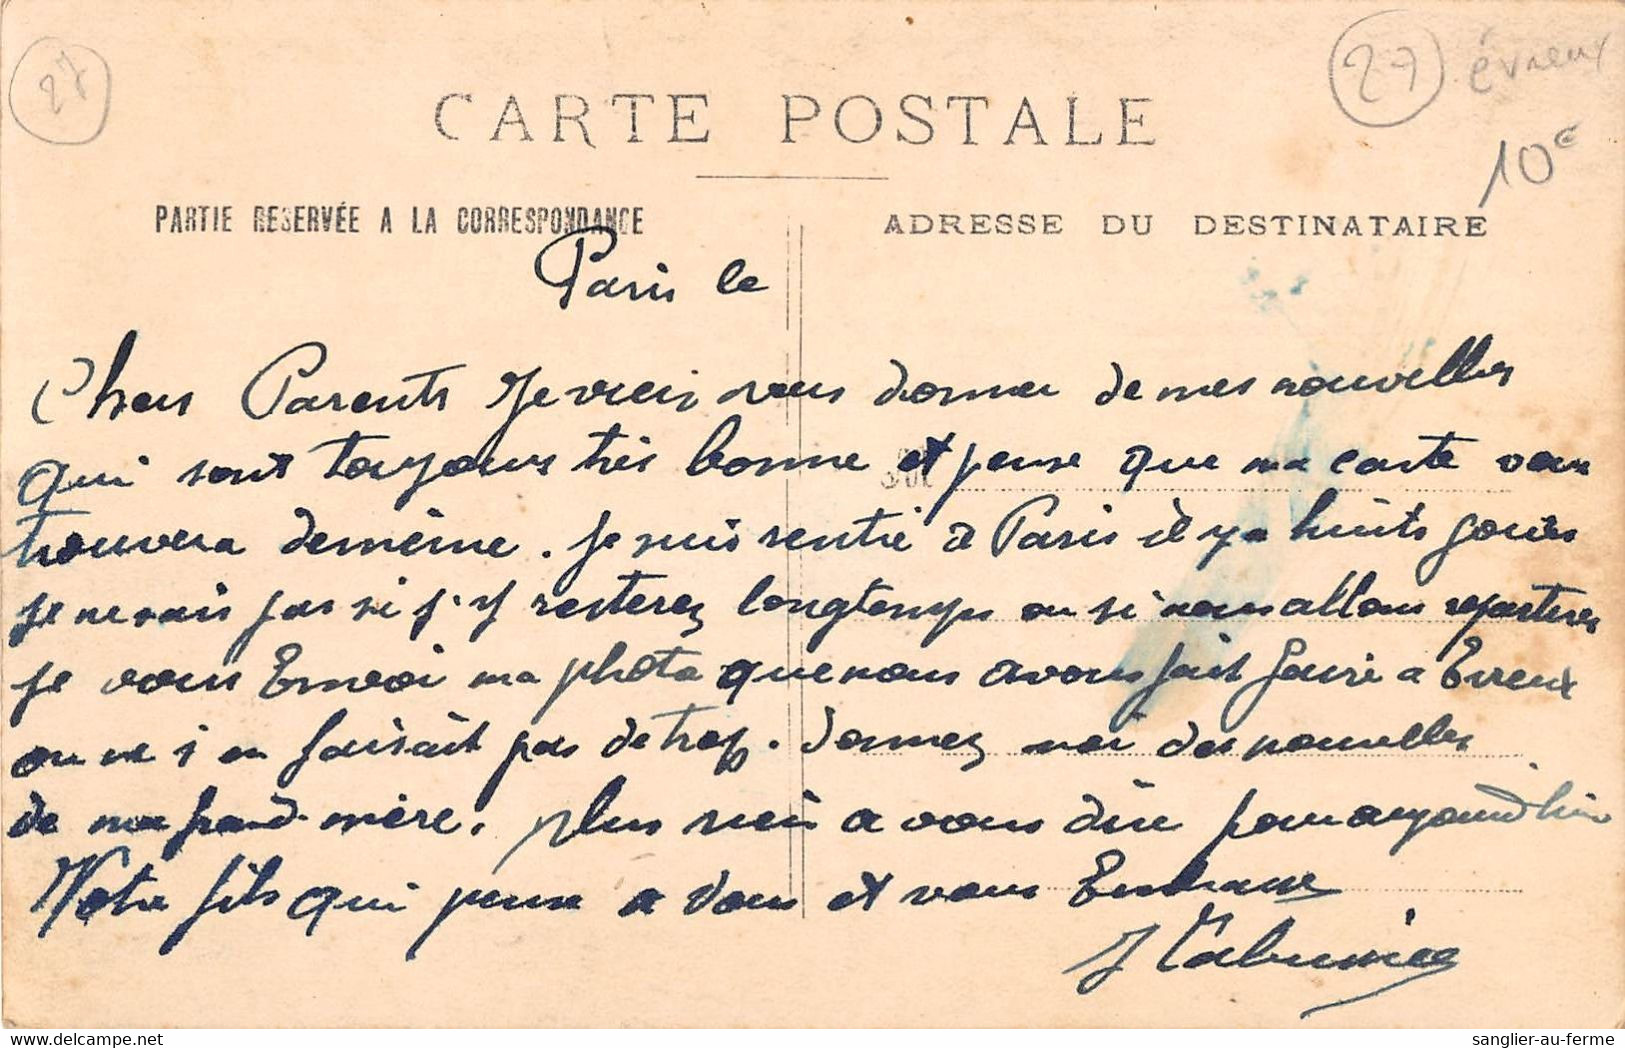 27
27 évreux
10€
CARTE POSTALE
PARTIE RESERVÉE A LA CORRESPONDANCE
ADRESSE DU DESTINATAIRE
Paris le
Chers Parents Je viens vous donner de mes nouvelles
qui sont toujours très bonne et pense que ma carte vous
trouvera de même. Je suis rentré à Paris il y a huits jours
je ne sais pas si j'y resterez longtemps ou si nous allons repartires
je vous Envoi ma photo que nous avons fait faire a Evreux
on ne s en faisait pas de trop. donnez moi des nouvelles
de ma grand-mère. plus rien a vous dire pour aujourd'hui
Votre fils qui pense a vous et vous Embrasse
sanglier-au-ferme.com